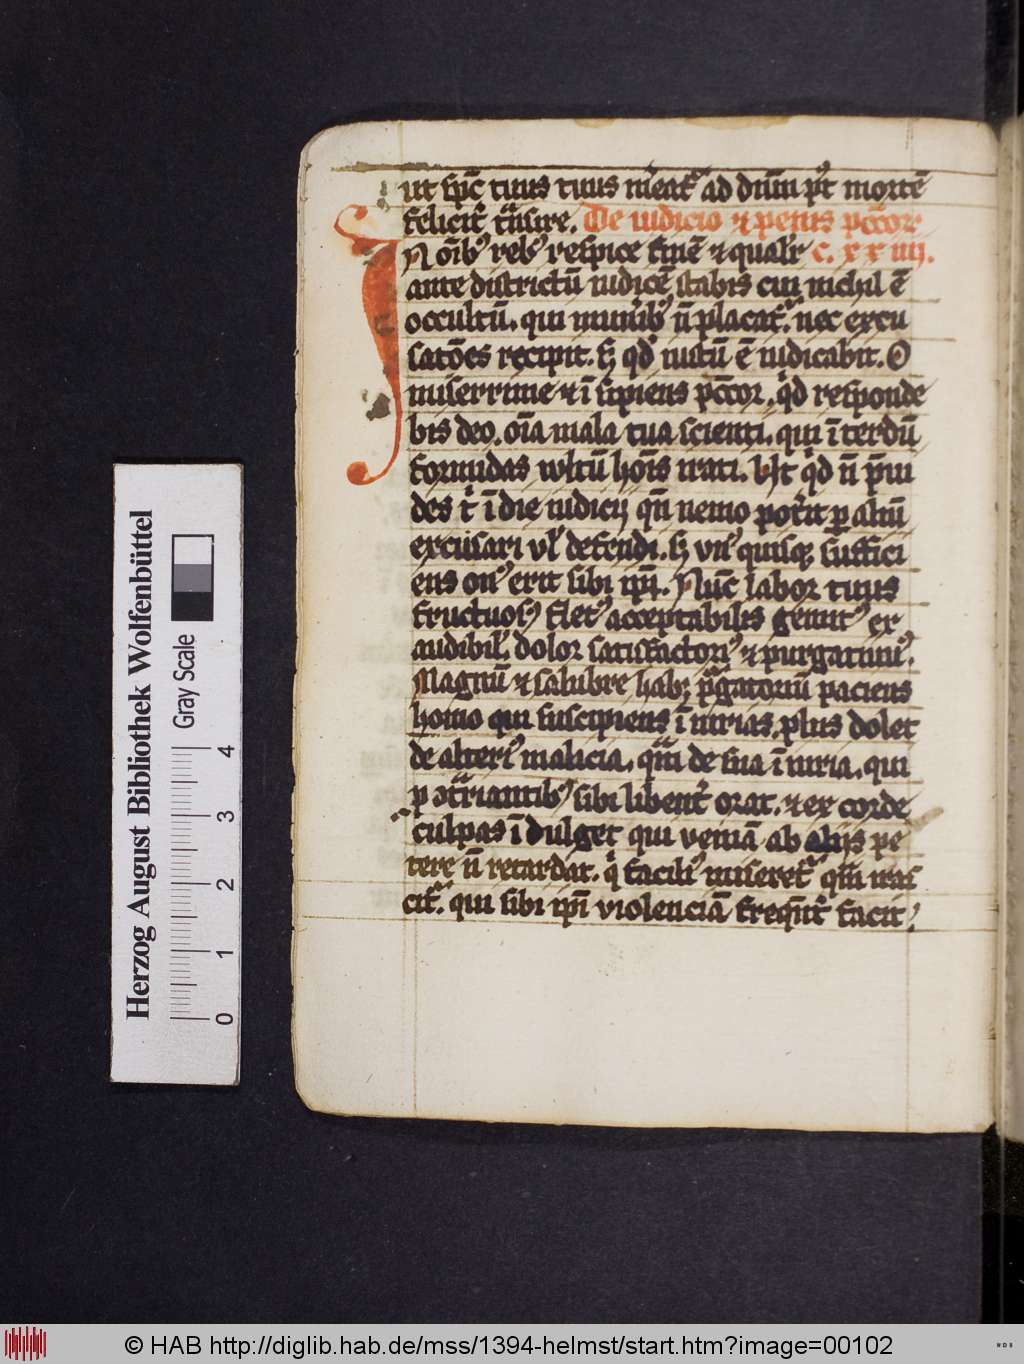 ut sp̄c tuus tuus m̄eat᷑ ad dn̄m p't mortē
felicit᷑ t᷑nsire. De iudicio ⁊ penis pcc̄or
IN oīb⁹ reb⁹ respice finē ⁊ qualr̄ c. xx iiij.
ante districtū iudicē stabis cui nichil ē
occultū. qui munib⁹ n̄ placat᷑. nec excu
satōes recipit. sꝫ qd̄ iustū ē iudicabit. O
miserrime ⁊ īsipiens pcc̄or. qͥd responde
bis deo. oīa mala tua scienti. qui īterdū
formidas wltū hoīs irati. Ut qͥd n̄ p̄ui
des tͥ ī die iudicij qn̄ nemo pot̄it p aliū
excusari vl̓ defendi. sꝫ vn⁹quisqꝫ suffici
ens on⁹ erit sibi ip̄i. Nūc labor tuus
fructuos⁹ flet⁹ acceptabilis gemit⁹ ex
audibil̓. dolor satisfactori⁹ ⁊ purgatiuu⁹.
Magnū ⁊ salubre habꝫ p᷑gatoriū paciens
homo qui suscipiens īiurias. plus dolet
de alteri⁹ malicia. qᷓm de sua īiuria. qui
p ꝯt᷑riantib⁹ sibi libent᷑ orat. ⁊ ex corde
culpas īdulget qui veniā ab alijs pe
tere n̄ retardat. qͥ facili⁹ miseret᷑ qᷓm iras
cit᷑. qui sibi ip̄i violenciā freqn̄t᷑ facit
Herzog August Bibliothek Wolfenbüttel
Gray Scale
0 1 2 3 4
© HAB http://diglib.hab.de/mss/1394-helmst/start.htm?image=00102